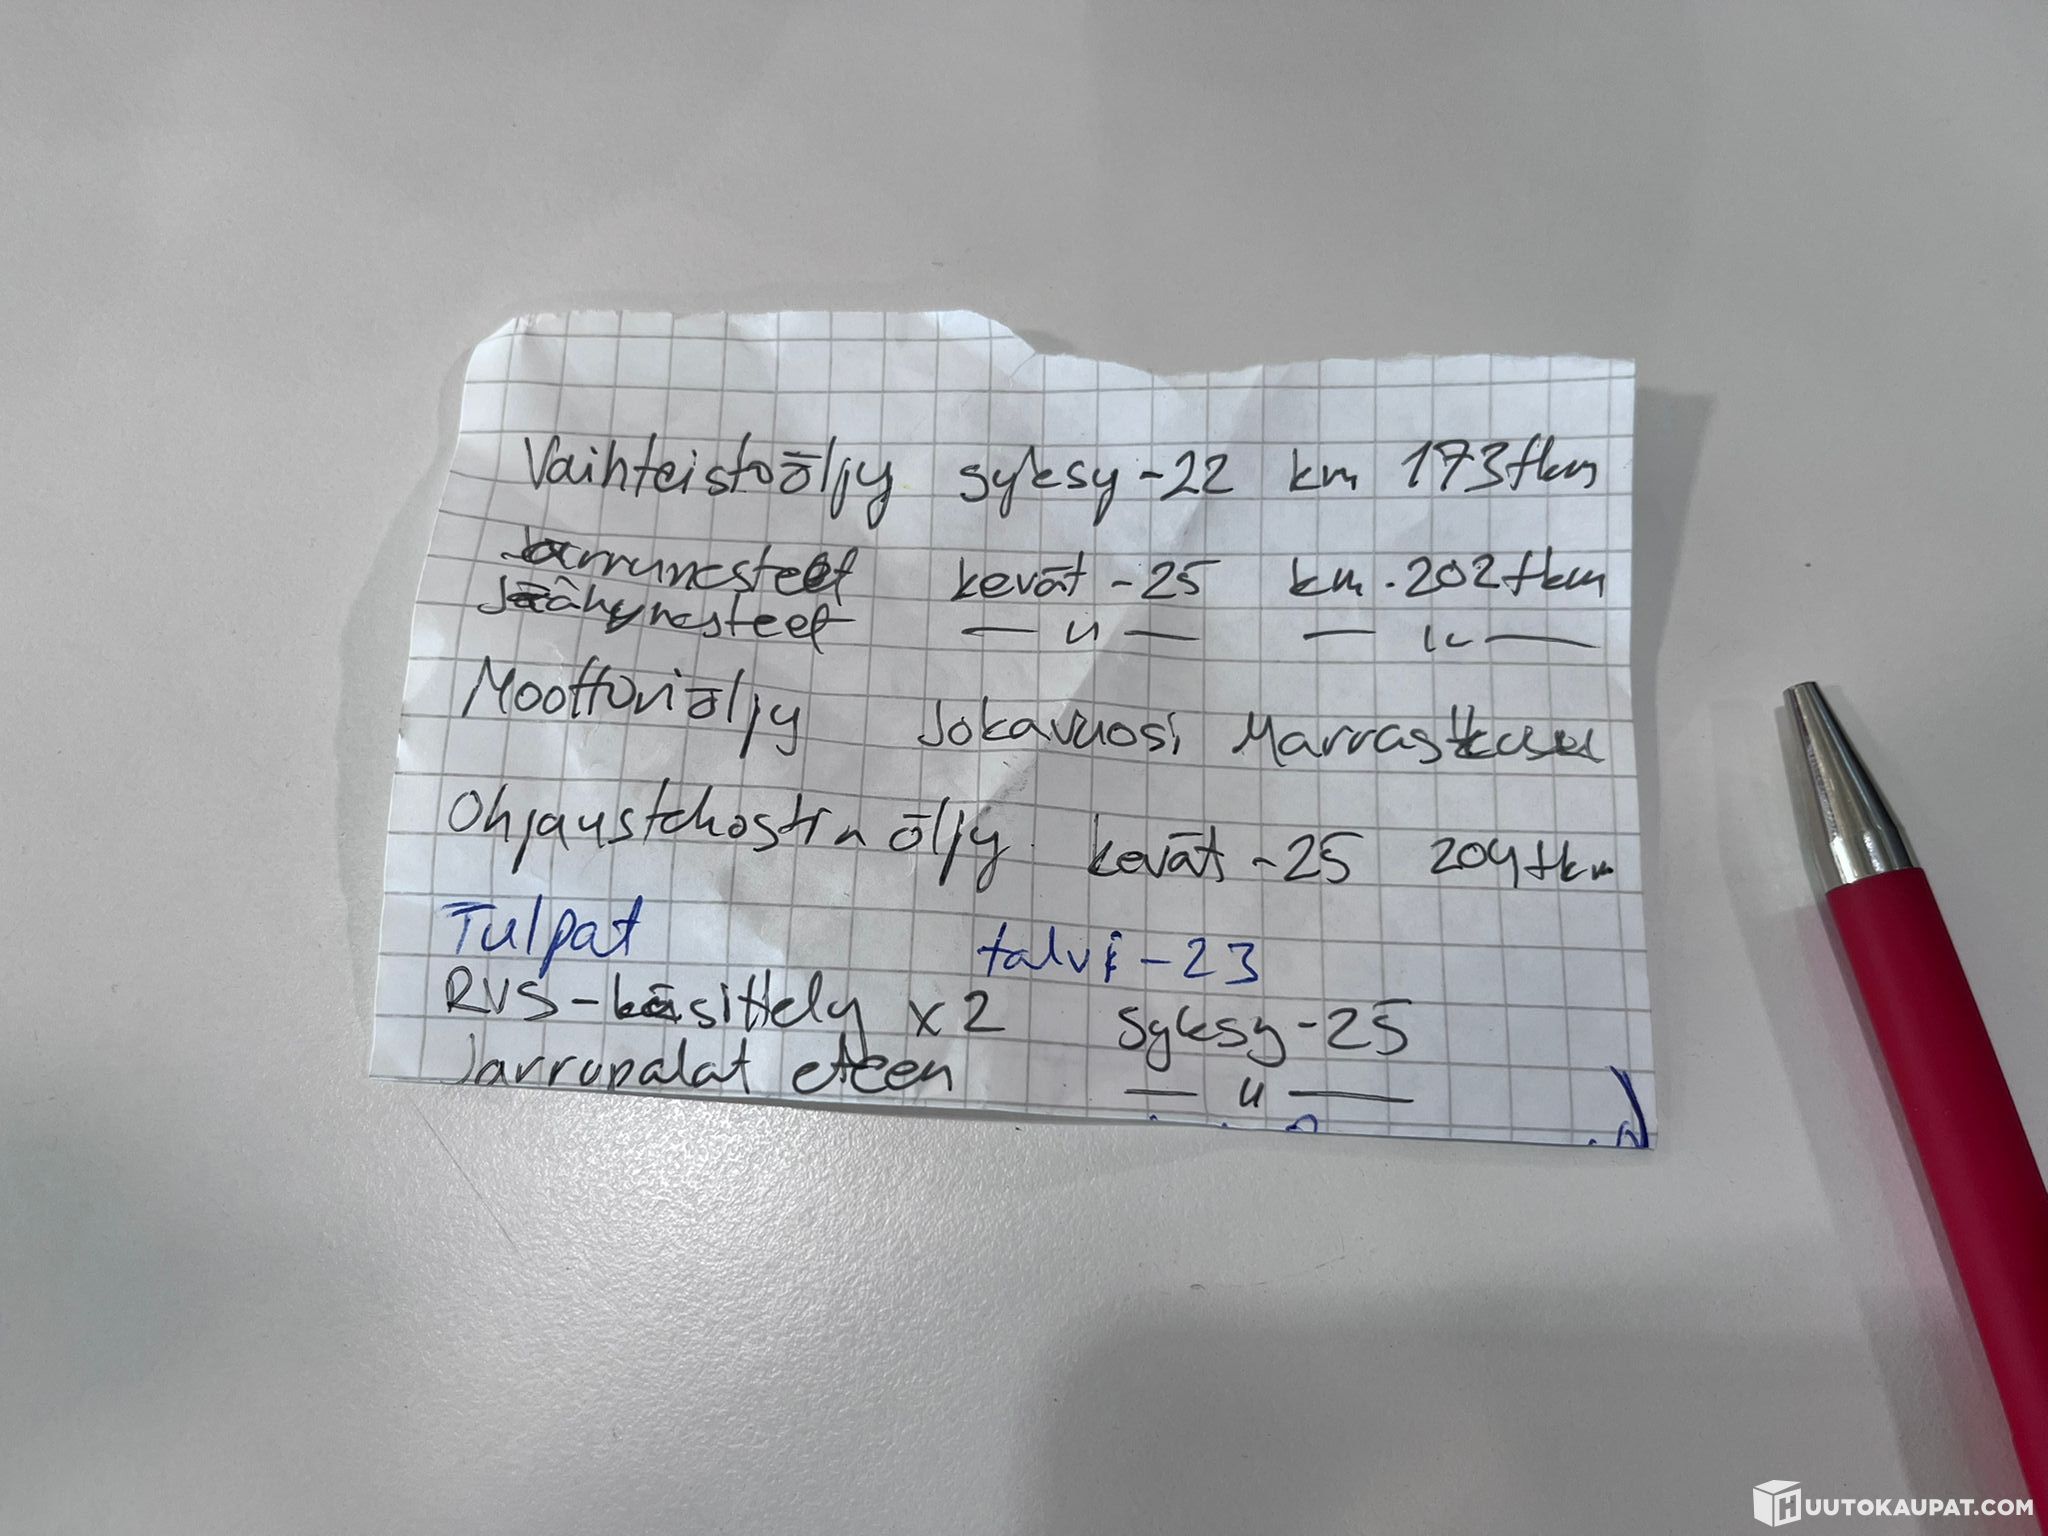 Vaihteistoöljy syksy -22 km 173tkm
Jarrunesteet kevät -25 km. 202tkm
Jäähynesteet — " — — " —
Moottoriöljy Jokavuosi Marraskuu
Ohjaustehostin öljy kevät -25 204tkm
Tulpat talvi -23
RVS-käsittely x2 syksy -25
Jarrupalat eteen — " —
HUUTOKAUPAT.COM